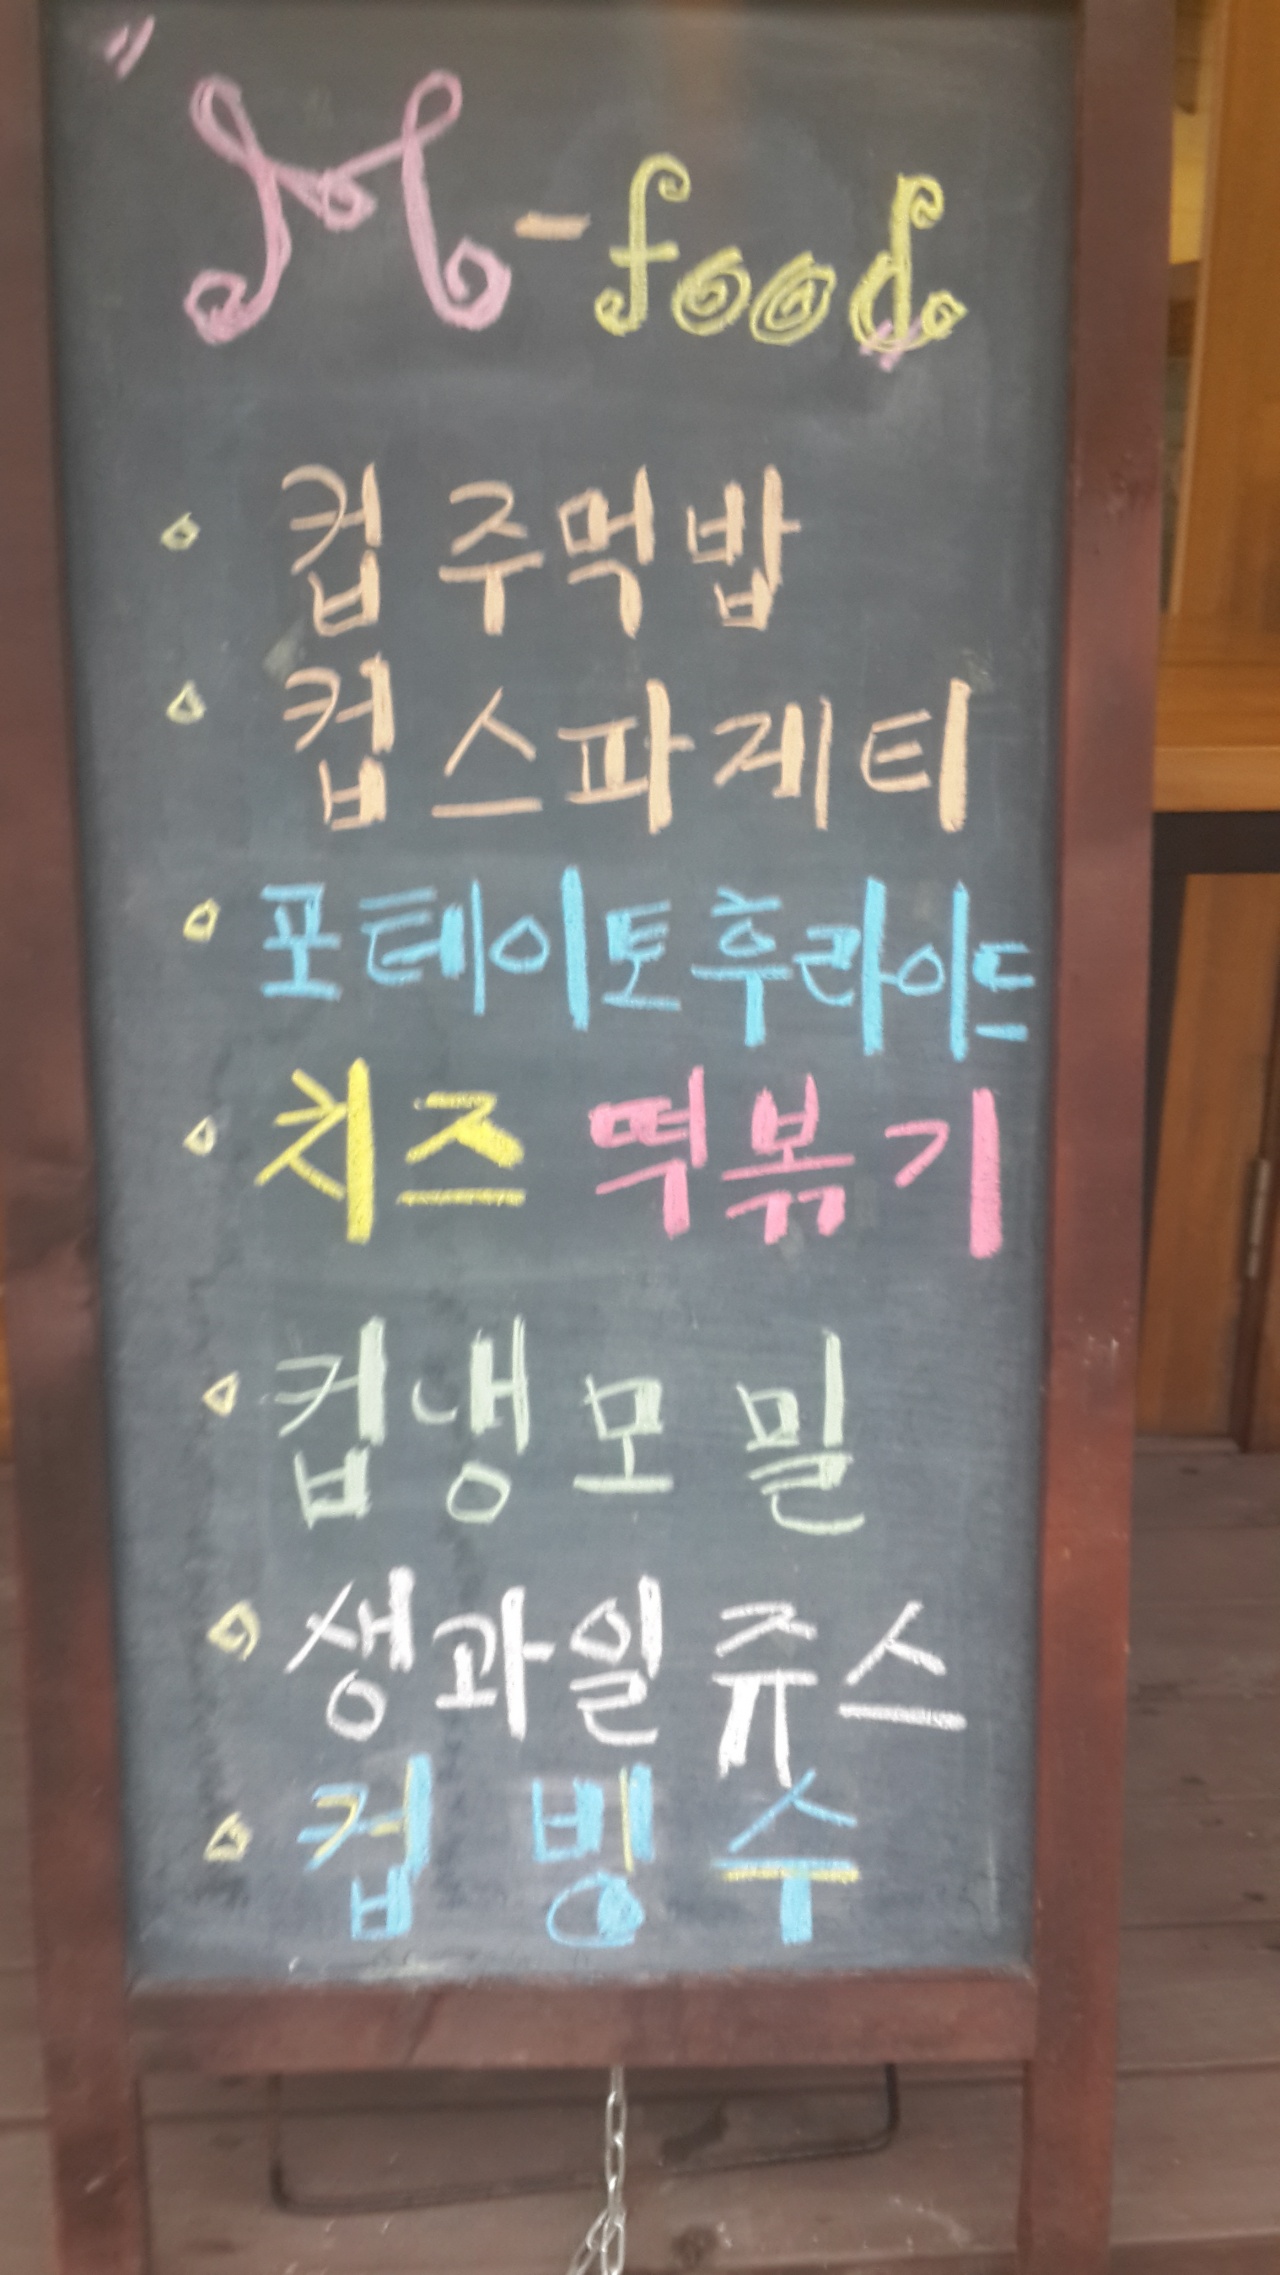 "M-food"
컵 주먹밥
컵 스파게티
포테이토후라이드
치즈 떡볶기
컵냉모밀
생과일 쥬스
컵 빙수